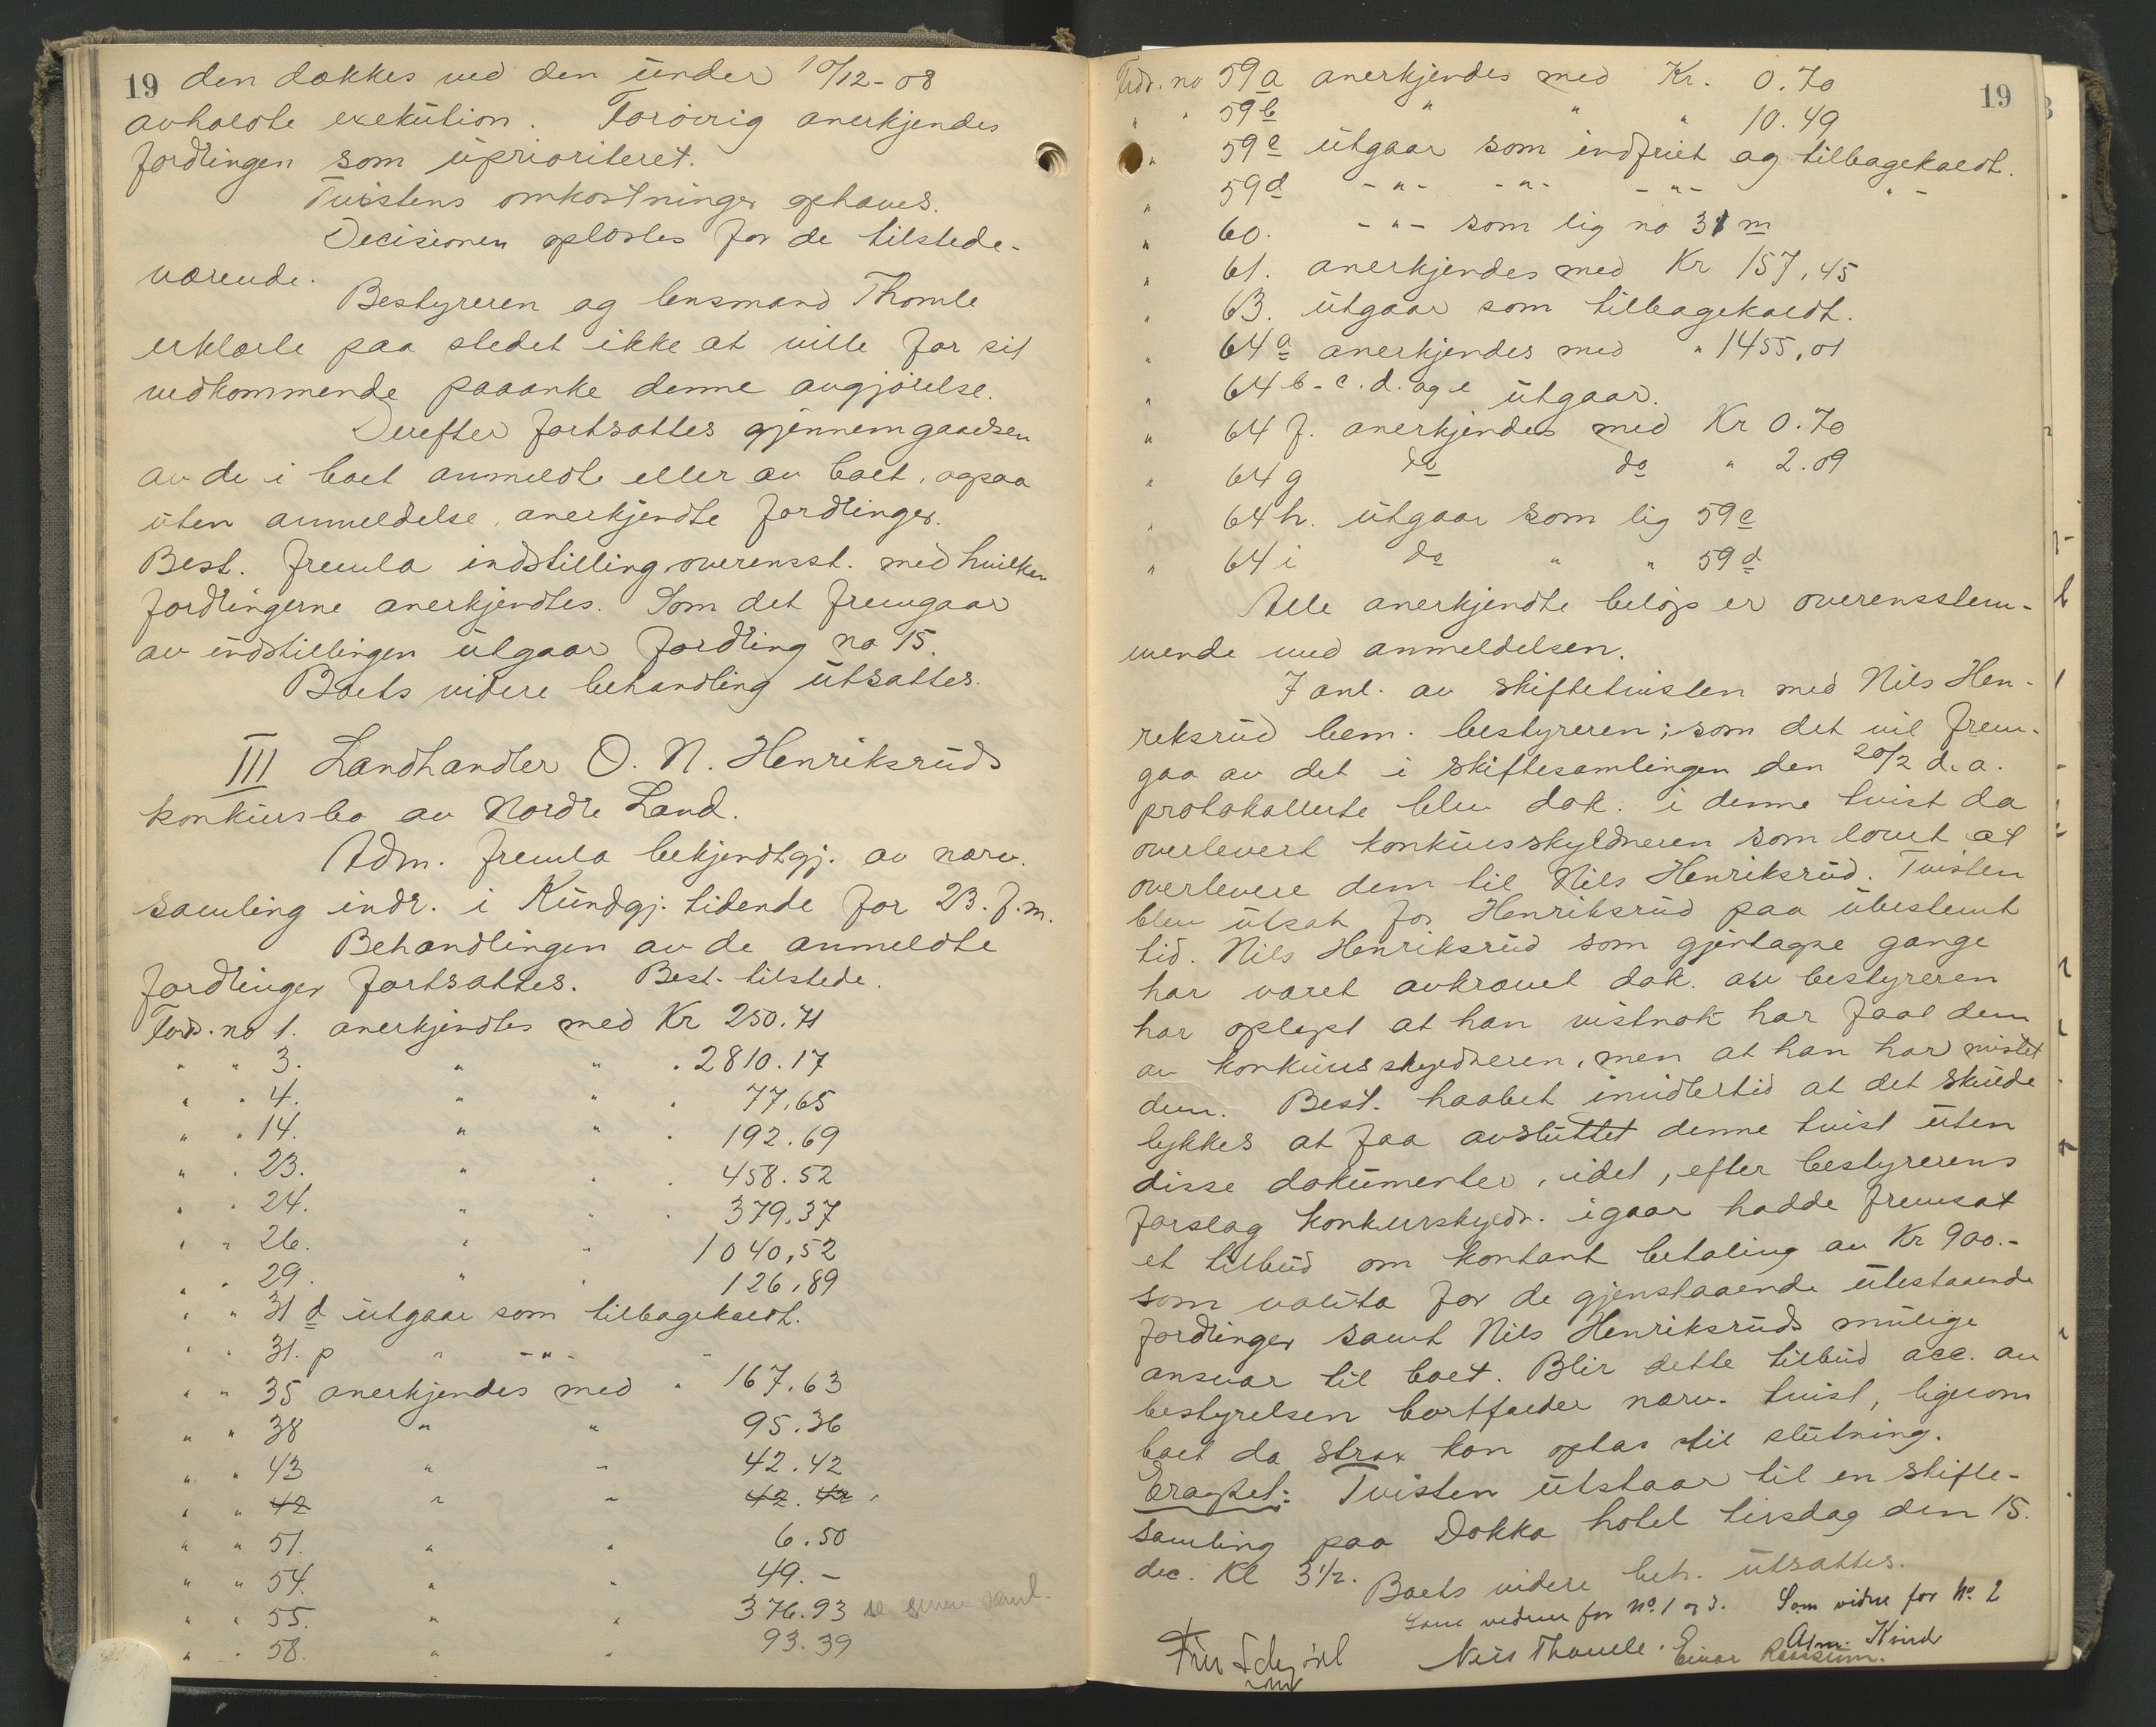 19 den dækkes ved den under 10/12-08
avholdte exekution. Forøvrig anerkjendes
fordringen som uprioriteret.
Tvistens omkostninger ophæves.
Decisionen oplæstes for de tilstede-
værende.
Bestyreren og lensmand Thomle
erklærte paa stedet ikke at ville for sit
vedkommende paaanke denne avgjørelse.
Derefter fortsattes gjennemgaaelsen
av de i boet anmeldte eller av boet, ogsaa
uten anmeldelse, anerkjendte fordringer.
Best. fremla indstilling overensst. med hvilken
fordringerne anerkjendtes. Som det fremgaar
av indstillingen utgaar fordring no 15.
Boets videre behandling utsattes.
III Landhandler O. N. Henriksruds
konkursbo av Nordre Land.
Adm. fremla bekjendtgj. av nærv.
samling indr. i Kundgj. tidende for 23. f.m.
Behandlingen av de anmeldte
fordringer fortsattes. Best. tilstede.
Ford. no 1. anerkjendtes med Kr 250.71
" " 3. " " " 2810.17
" " 4. " " " 77,65
" " 14. " " " 192.69
" " 23. " " " 458.52
" " 24. " " " 379,37
" " 26. " " 1040,52
" " 29. " " 126,89
" " 31 d utgaar som tilbagekaldt.
" " 31. p " -"- "
" " 35 anerkjendes med " 167,63
" " 38 " " 95.36
" " 43 " " 42.42
" " 42 " " 42.42 "
" " 51. " " 6.50
" " 54. " " 49.-
" " 55. " " 376.93 se senere saml.
" " 58. " " 93.39
19
Fdr. no 59a anerkjendes med Kr. 0.70
" " 59b " " " 10.49
" 59c utgaar som indfriet og tilbagekaldt.
" 59d -"- -"- -"- "-
" 60. -"- som lig no 31 m
" 61. anerkjendes med Kr 157,45
" 63. utgaar som tilbagekaldt.
" 64a anerkjendes med " 1455,01
" 64 b-c.d. og e utgaar.
" 64 f. anerkjendes med Kr 0.70
" 64 g do do " 2.09
" 64 h. utgaar som lig 59c
" 64 i do " " 59d
Alle anerkjendte beløp er overensstem-
mende med anmeldelsen.
I anl. av skiftetvisten med Nils Hen-
riksrud bem. bestyreren: som det vil frem-
gaa av det i skiftesamlingen den 20/2 d.a.
protokollerte blev dok. i denne tvist da
overlevert konkursskyldneren som lovet at
overlevere dem til Nils Henriksrud. Tvisten
blev utsat for Henriksrud paa ubestemt
tid. Nils Henriksrud som gjentagne gange
har været avkrævet dok. av bestyreren
har oplyst at han vistnok har faat dem
av konkursskyldneren, men at han har mistet
dem. Best. haabet imidlertid at det skulde
lykkes at faa avsluttet denne tvist uten
disse dokumenter, idet, efter bestyrerens
forslag konkursskyldn. igaar hadde fremsat
et tilbud om kontant betaling av Kr 900.-
som valuta for de gjenstaaende utestaaende
fordringer samt Nils Henriksruds mulige
ansvar til boet. Blir dette tilbud acc. av
bestyrelsen bortfalder nærv. tvist, ligesom
boet da strax kan optas til slutning.
Eragtet: Tvisten utstaar til en skifte-
samling paa Dokka hotel tirsdag den 15.
dec. Kl 3½.
Boets videre beh. utsattes.
Som vidne for No. 1 og 3. Som vidne for No. 2
Nils Thomle. Einar Adm. Kind